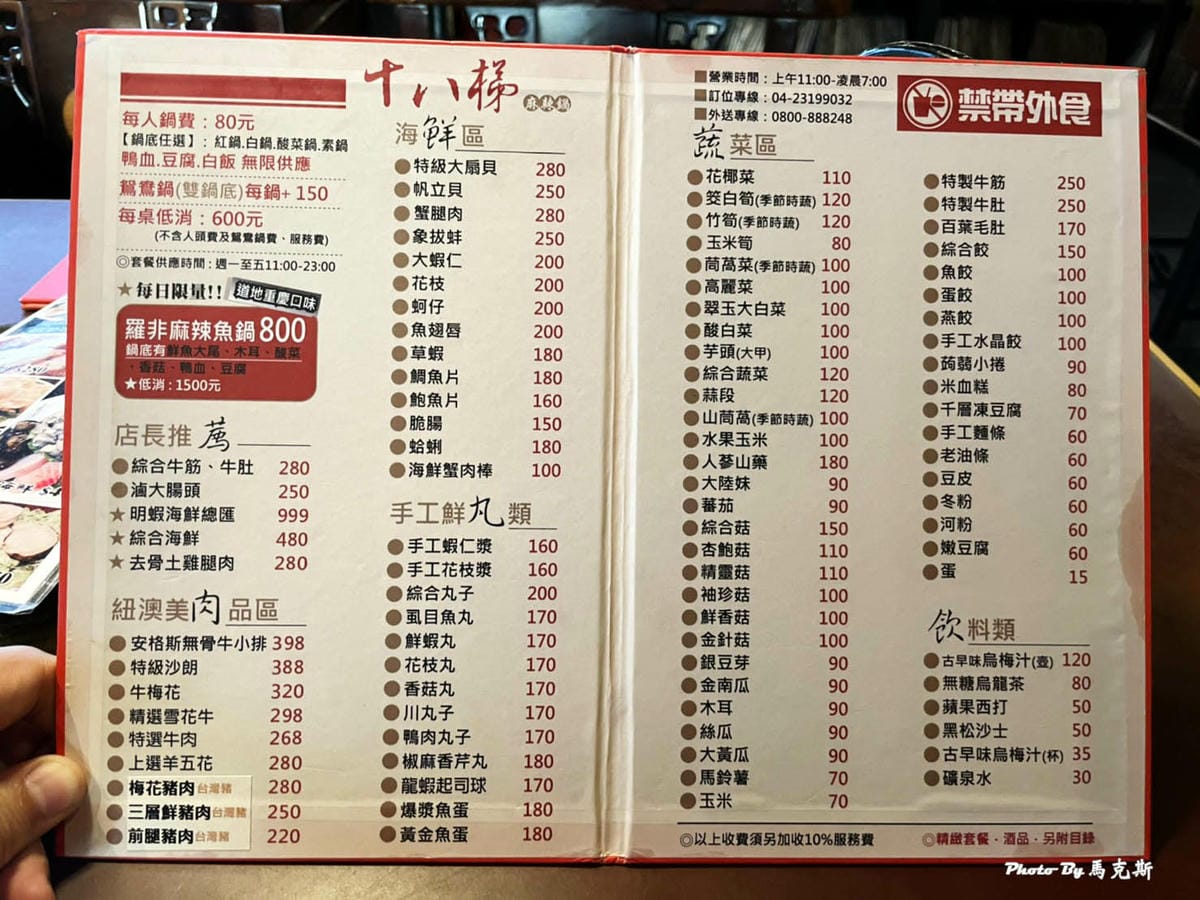 十八梯 麻辣鍋
每人鍋費：80元
【鍋底任選】：紅鍋.白鍋.酸菜鍋.素鍋
鴨血.豆腐.白飯 無限供應
鴛鴦鍋(雙鍋底)每鍋+ 150
每桌低消：600元
(不含人頭費及鴛鴦鍋費、服務費)
◎套餐供應時間：週一至五11:00-23:00
★每日限量!! 道地重慶口味
羅非麻辣魚鍋800
鍋底有鮮魚大尾、木耳、酸菜
、香菇、鴨血、豆腐
★低消：1500元
店長推薦
●綜合牛筋、牛肚 280
●滷大腸頭 250
★明蝦海鮮總匯 999
★綜合海鮮 480
★去骨土雞腿肉 280
紐澳美肉品區
●安格斯無骨牛小排 398
●特級沙朗 388
●牛梅花 320
●精選雪花牛 298
●特選牛肉 268
●上選羊五花 280
●梅花豬肉台灣豬 280
●三層鮮豬肉台灣豬 250
●前腿豬肉台灣豬 220
海鮮區
●特級大扇貝 280
●帆立貝 250
●蟹腿肉 280
●象拔蚌 250
●大蝦仁 200
●花枝 200
●蚵仔 200
●魚翅唇 200
●草蝦 180
●鯛魚片 180
●鮑魚片 160
●脆腸 150
●蛤蜊 180
●海鮮蟹肉棒 100
手工鮮丸類
●手工蝦仁漿 160
●手工花枝漿 160
●綜合丸子 200
●虱目魚丸 170
●鮮蝦丸 170
●花枝丸 170
●香菇丸 170
●川丸子 170
●鴨肉丸子 170
●椒麻香芹丸 180
●龍蝦起司球 170
●爆漿魚蛋 180
●黃金魚蛋 180
■營業時間：上午11:00-凌晨7:00
■訂位專線：04-23199032
■外送專線：0800-888248
禁帶外食
蔬菜區
●花椰菜 110
●筊白筍(季節時蔬) 120
●竹筍(季節時蔬) 120
●玉米筍 80
●茼萵菜(季節時蔬) 100
●高麗菜 100
●翠玉大白菜 100
●酸白菜 100
●芋頭(大甲) 100
●綜合蔬菜 120
●蒜段 120
●山茼萵(季節時蔬) 100
●水果玉米 100
●人蔘山藥 180
●大陸妹 90
●蕃茄 90
●綜合菇 150
●杏鮑菇 110
●精靈菇 110
●袖珍菇 100
●鮮香菇 100
●金針菇 100
●銀豆芽 90
●金南瓜 90
●木耳 90
●絲瓜 90
●大黃瓜 90
●馬鈴薯 70
●玉米 70
●特製牛筋 250
●特製牛肚 250
●百葉毛肚 170
●綜合餃 150
●魚餃 100
●蛋餃 100
●燕餃 100
●手工水晶餃 100
●蒟蒻小捲 90
●米血糕 80
●千層凍豆腐 70
●手工麵條 60
●老油條 60
●豆皮 60
●冬粉 60
●河粉 60
●嫩豆腐 60
●蛋 15
飲料類
●古早味烏梅汁(壺) 120
●無糖烏龍茶 80
●蘋果西打 50
●黑松沙士 50
●古早味烏梅汁(杯) 35
●礦泉水 30
◎以上收費須另加收10%服務費
◎精緻套餐·酒品·另附目錄
Photo By 馬克斯